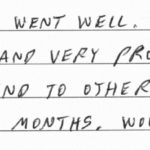 WENT WELL.
AND VERY PRO
ND TO OTHER
MONTHS. WOU